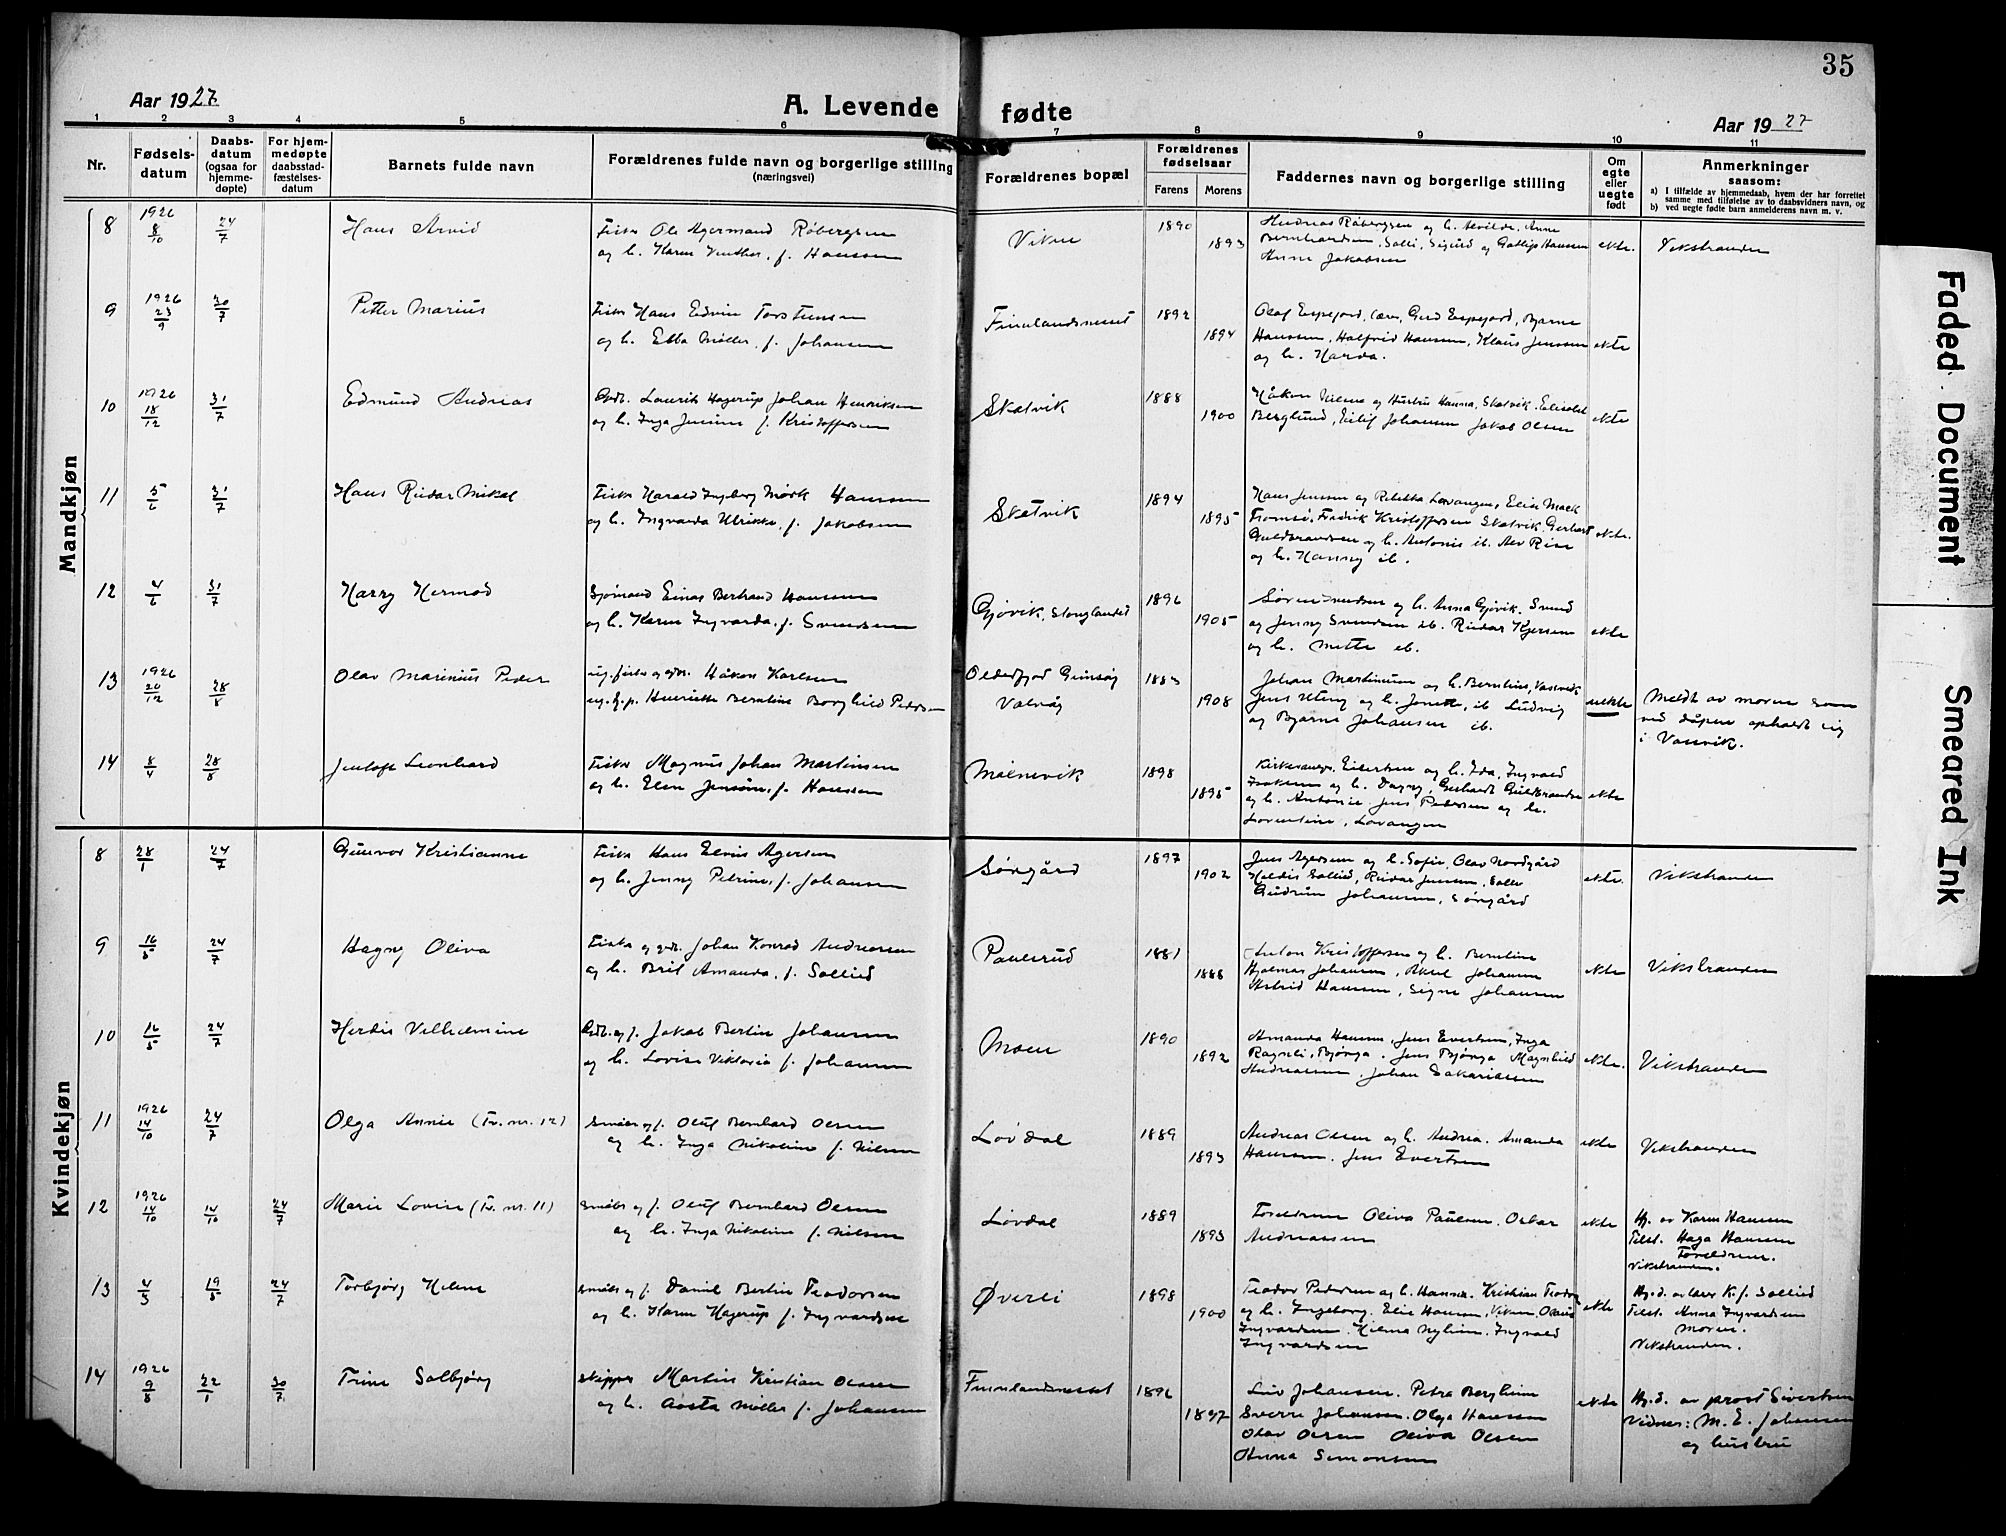 35
Aar 1927
A. Levende fødte
Aar 1927
1 2 3 4 5 6 7 8 9 10 11
Nr.
Fødsels-
datum
Daabs-
datum
(ogsaa for
hjemme-
døpte)
For hjem-
medøpte
daabsstad-
fæstelses-
datum
Barnets fulde navn
Forældrenes fulde navn og borgerlige stilling
(næringsvei)
Forældrenes bopæl
Forældrenes
fødselsaar
Farens Morens
Faddernes navn og borgerlige stilling
Om
egte
eller
uegte
født
Anmerkninger
saasom:
a) I tilfælde av hjemmedaab, hvem der har forrettet
samme med tilføielse av to daabsvidners navn, og
b) ved uegte fødte barn anmelderens navn m. v.
Mandkjøn
8 1926 8/10 24/7 Hans Arvid
Fisker Ole Agermand Røbergsen
og h. Karen Venther, f. Hanssen
Viken 1890 1893
Andreas Røbergsen og h. Alvilde, Anne
Bernhardsen, Solli, Sigurd og Gotlip Hanssen
Anne Jakobsen
ekte. Vikstranden
9 1926 23/9 30/7 Petter Marius
Fisker Hans Edvin Torstensen
og h. Ebba Møller, f. Johansen
Finnlandsneset 1892 1894
Olaf Espejord, lærer, Gerd Espejord, Bjarne
Hanssen, Halfrid Hansen, Klaus Jenssen
og h. Harda.
ekte
10 1926 18/12 31/7 Edmund Andreas
Gdb. Laurits Hagerup Johan Henriksen
og h. Inga Jensine f. Kristoffersen
Skatvik 1888 1900
Håkon og Hustru Hanna, Skatvik. Elisabet
Berglund, Eilif Johansen Jakob Olsen
ekte
11 5/6 31/7 Hans Reidar Mikal
Fisker Harald Ingberg Mørk Hanssen
og h. Ingvarda Ulrikke, f. Jakobsen
Skatvik 1894 1895
Hans Jenssen og Rebekka Lovangen, Elise Mack
Tromsø, Fredrik Kristoffersen Skatvik, Gerhard
Guldbrandsen og h. Antonie ib.
og h. Hanny ib.
ekte.
12 4/6 31/7 Harry Hermod
Sjømand Einar Bertrand Hanssen
og h. Karen Ingvarda, f. Svendsen
Gjøvik, Stonglandet 1896 1905
Søren og h. Anna Gjøvik. Svend
og Jenny Svendsen ib. Reidar
og h. Mette ib.
ekte
13 1926 20/12 28/8 Olav Marinius Peder
ug. fisker og gdbr. Håkon Karlsen
ug. h.p. Henrikke Berntine Borghild Pedersen
Olderfjord Grimsøy
Valvåg
1883 1908
Johan Martinsen og h. Berntine, Vassvik
Jens Uteng og h. Jonette, ib Ludvig
og Bjarne Johansen ib.
uekte
Meldt av moren som
ved dåpen opholdt sig
i Vassvik.
14 8/4 28/8 Jentoft Leonhard
Fisker Magnus Johan Martinsen
og h. Elen Jensine, f. Hanssen
Molnesvik 1898 1895
Kirkesanger Eilertsen og h. Ida, Ingvald
Isaksen og h. Dagny, Gerhardt Guldbrandsen
og h. Antonie. Jens Pedersen og h.
Lorentine, Lovangen
ekte
Kvindekjøn
8 28/1 24/7 Gunvor Kristianne
Fisker Hans Elvin Agersen
og h. Jenny Petrine, f. Johansen
Sørgård 1897 1902
Jens Agersen og h. Sofie, Olav Nordgård
Heldis Sollied, Reidar Jensen, Solli
Gudrun Johansen, Sørgård
ekte. Vikstranden
9 16/5 24/7 Hagny Oliva
Fisker og gdb. Johan Konrad Andreassen
og h. Brit Amanda, f. Sollied
Paulsrud 1881 1888
Anton Kristoffersen og h. Berntine
Hjalmar Johansen, Aksel Johansen
Astrid Hansen, Signe Johansen
ekte Vikstranden
10 16/5 24/7 Herdis Vilhelmine
Gdb. og f. Jakob Bertin Johansen
og h. Lovise Viktoria f. Johansen
Moen 1890 1892
Amanda Hansen, Jens Evertsen, Inga
Ragneli, Bjørga, Jens Bjørga Magnhild
Andreassen, Johan Sakariassen
ekte. Vikstranden
11 1926 14/10 24/7 Olga Annie (Tv. nr. 12)
Småbr og f. Oluf Bernhard Olsen
og h. Inga Nikoline f. Nilsen
Løvdal 1889 1893
Andreas Olsen og h. Andrea. Amanda
Hanssen. Jens Evertsen
ekte Vikstranden
12 1926 14/10 14/10 24/7 Marie Lovise (Tv. nr. 11)
Småbr og f. Oluf Bernhard Olsen
og h. Inga Nikoline f. Nilsen
Løvdal 1889 1893
Foreldrene Oliva Paulsen. Oskar
Andreassen
ekte
Hj. av Karen Hansen
Tilst. Haga Hansen
Foreldrene.
Vikstranden.
13 4/3 19/5 24/7 Torbjørg Helene
Småbr og f. Daniel Bertin Teodorsen
og h. Karen Hagerup f. Ingvardsen
Øverli 1898 1900
Teodor Pedersen og h. Hanna. Kristian Teodor
og h. Ingeborg, Elie Hansen, Viken. Olaus
Ingvardsen. Hilma Nyheim. Ingvald
Ingvardsen
ekte
Hj.d. av lærer K. f. Sollied
Tilst. Anna Ingvardsen
Moren.
Vikstranden.
14 1926 9/8 22/1 30/7 Trine Solbjørg
Skipper Martin Kristian Olsen
og h. Aasta Møller f. Johansen
Finnlandsneset 1896 1897
Johansen. Petra Bergheim
Sverre Johansen. Olga Hanssen
Olav Olsen Oliva Olsen
Anna Simonsen
ekte
Hj.d. av prost Sivertsen
Vidner: M. E. Johansen
og hustru
Faded Document
Smeared Ink